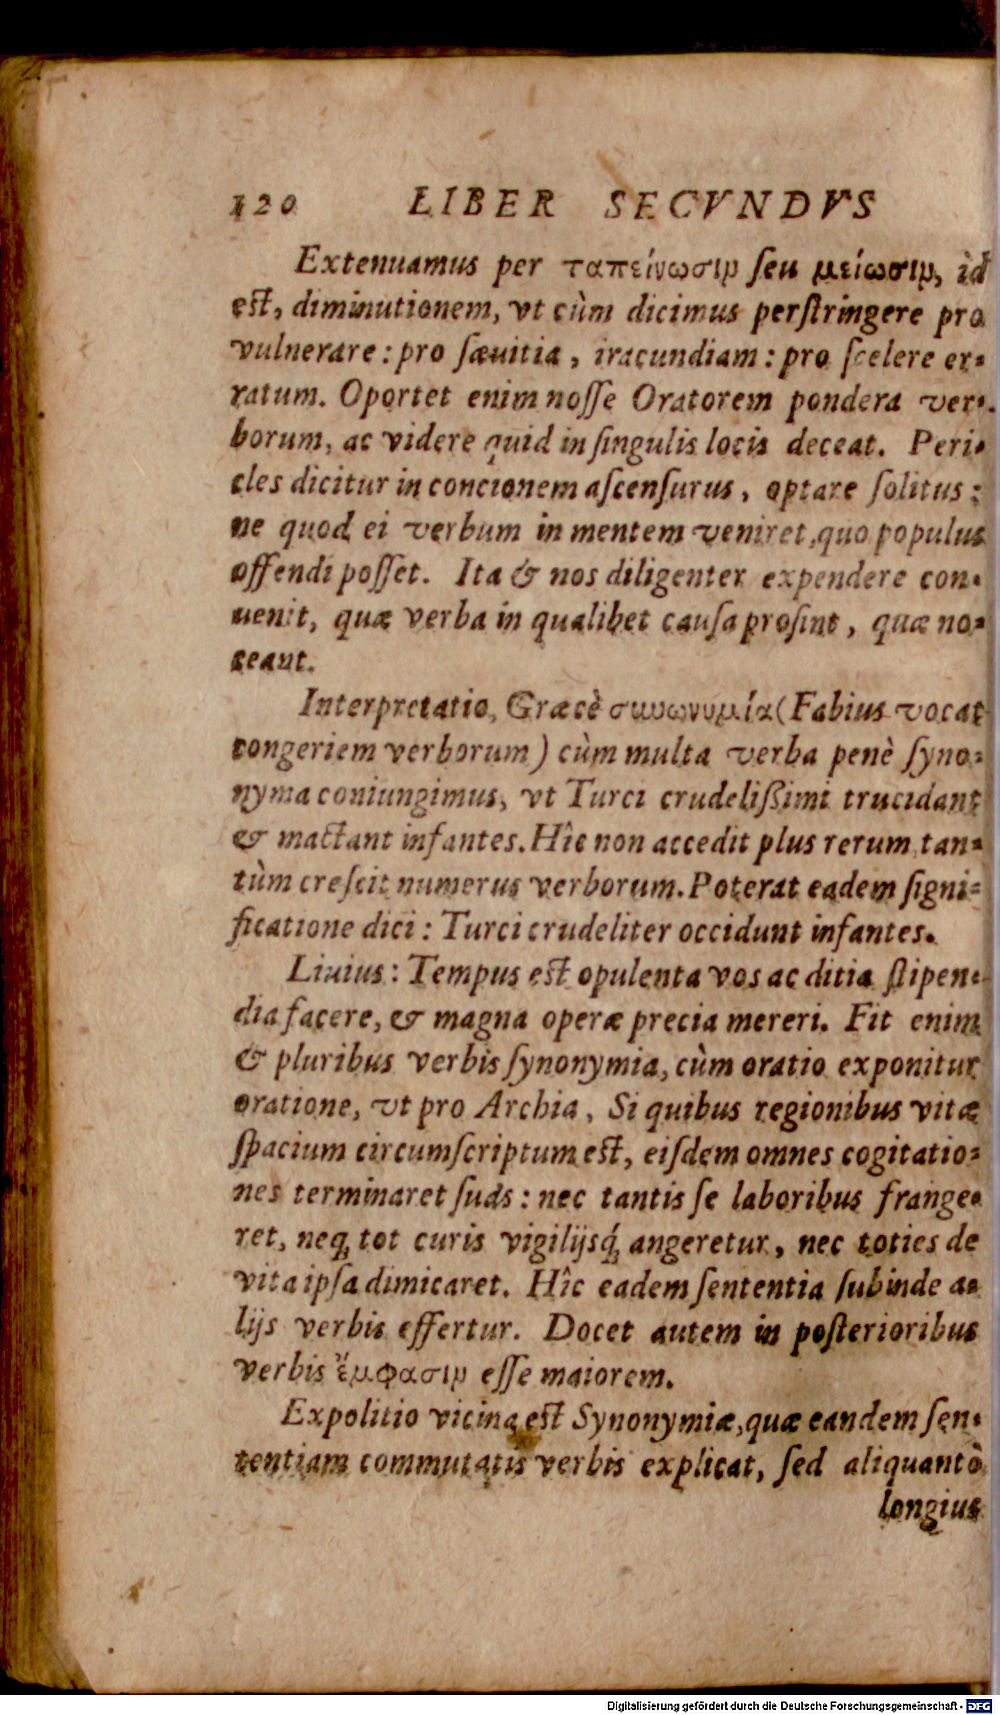 120 LIBER SECVNDVS
Extenuamus per ταπείνωσιν ſeu μείωσιν, id
eſt, diminutionem, vt cùm dicimus perſtringere pro
vulnerare: pro ſæuitia, iracundiam: pro ſcelere er-
ratum. Oportet enim noſſe Oratorem pondera ver-
borum, ac videre quid in ſingulis locis deceat. Peri-
cles dicitur in concionem aſcenſurus, optare ſolitus:
ne quod ei verbum in mentem veniret, quo populus
offendi poſſet. Ita & nos diligenter expendere con-
uenit, quæ verba in qualibet cauſa proſint, quæ no-
ceant.
Interpretatio, Græcè συνωνυμία (Fabius vocat
congeriem verborum) cùm multa verba penè ſyno-
nyma coniungimus, vt Turci crudelißimi trucidant
& mactant infantes. Hîc non accedit plus rerum, tan-
tùm creſcit numerus verborum. Poterat eadem ſigni-
ficatione dici: Turci crudeliter occidunt infantes.
Liuius: Tempus eſt opulenta vos ac ditia ſtipen-
dia facere, & magna operæ precia mereri. Fit enim
& pluribus verbis ſynonymia, cùm oratio exponitur
oratione, vt pro Archia, Si quibus regionibus vitæ
ſpacium circumſcriptum eſt, eiſdem omnes cogitatio-
nes terminaret ſuas: nec tantis ſe laboribus frange-
ret, neq́; tot curis vigilijsq́; angeretur, nec toties de
vita ipſa dimicaret. Hîc eadem ſententia ſubinde a-
lijs verbis effertur. Docet autem in poſterioribus
verbis ἔμφασιν eſſe maiorem.
Expolitio vicina eſt Synonymiæ, quæ eandem ſen-
tentiam commutatis verbis explicat, ſed aliquantò
longius
Digitalisierung gefördert durch die Deutsche Forschungsgemeinschaft - DFG